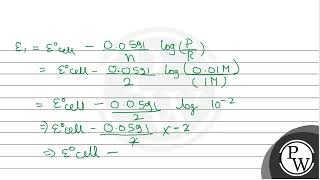 ε₁ = ε°cell - 0.0591/n log(P/R)
= ε°cell - 0.0591/2 log (0.01M)/(1M)
= ε°cell - 0.0591/2 log 10⁻²
⇒ ε°cell - 0.0591/2 x -2
⇒ ε°cell -
PW